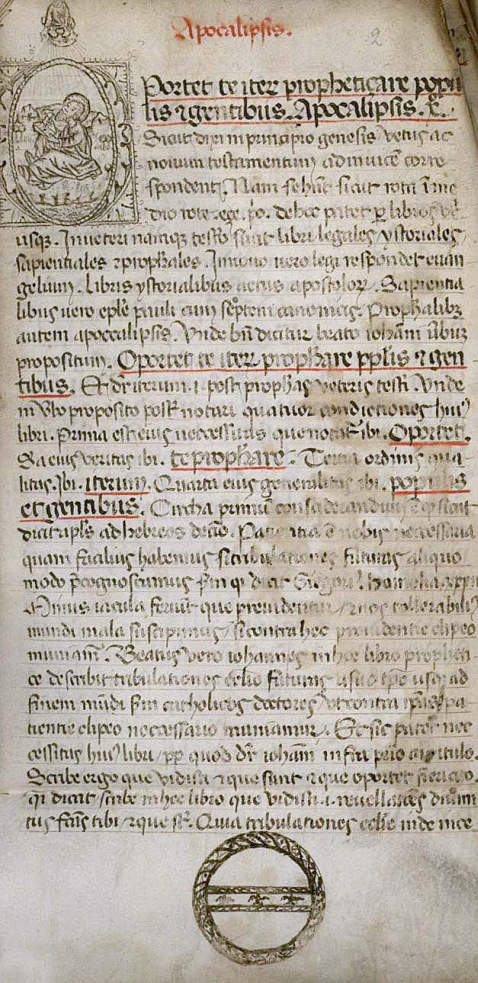 Apocalipsis.
2
Portet te iter̃ propheticare popu
lis ⁊ gentibus. Apocalipsis. x̃.
Sicut dixi in principio genesis vetus ac
novum testamentum adinvicẽ corre
spondent. Nam se hñt sicut rota ĩ me
dio rote. eze. p̃o. de hoc patet p̱ libros
usq. In veteri namq testo sunt libri legales ystoriales
sapientiales ⁊ prophales. In novo vero legi respõdet evan
gelium. Libris ystorialibus actus apostolorꝝ. Sapientia
libus vero eplẽ pauli cum septem canonicis. Prophalibꝫ
autem apocalipsis. Unde bñ dicitur beato iohañi
propositum. Oportet te iter̃ prophare pplis ⁊ gen
tibus. Et dr̃ iterum .i. post prophas veteris testi. Unde
in vbo proposito poss̃t notari quatuor condiciones huiꝰ
libri. Prima est eius necessitas que notat̃ ibi. Oportet.
Sa eius veritas ibi. te prophare. Tertia ordinis qua
litas. ibi. iterum. Quarta eius generalitas ibi. populis
et gentibus. Circha primũ considerandum ẽ q sicut
dicit apls ad hebreos decĩo. Patientia ẽ nobis necessaria
quam facilius habemus si tribulationes futuras aliquo
modo p̃cognoscimus s̃m qd dicit Gregori. homelia
Minus iacula feriut que previdentur. ⁊ nos tollerabiliꝰ
mundi mala suscipimus, si contra hec providentie clipeo
muniam̃. Beatus vero iohannes in hoc libro prophetí
ce describit tribulationes eclie futuras usq ad
finem mũdi s̃m catholicos doctores ut contra ipsas pa
tientie clipeo necessario muniamur. Et sic patet nec
cessitas huiꝰ libri. pp quod dr̃ iohañi infra p̃rio capitulo.
Scribe ergo que vidisti ⁊ que sunt ⁊ que oportet fieri cito.
qi dicat scribe in hoc libro que vidisti .i. revellatões
tus fc̃as tibi. ⁊ que st̃. Quia tribulationes eclie inde ince